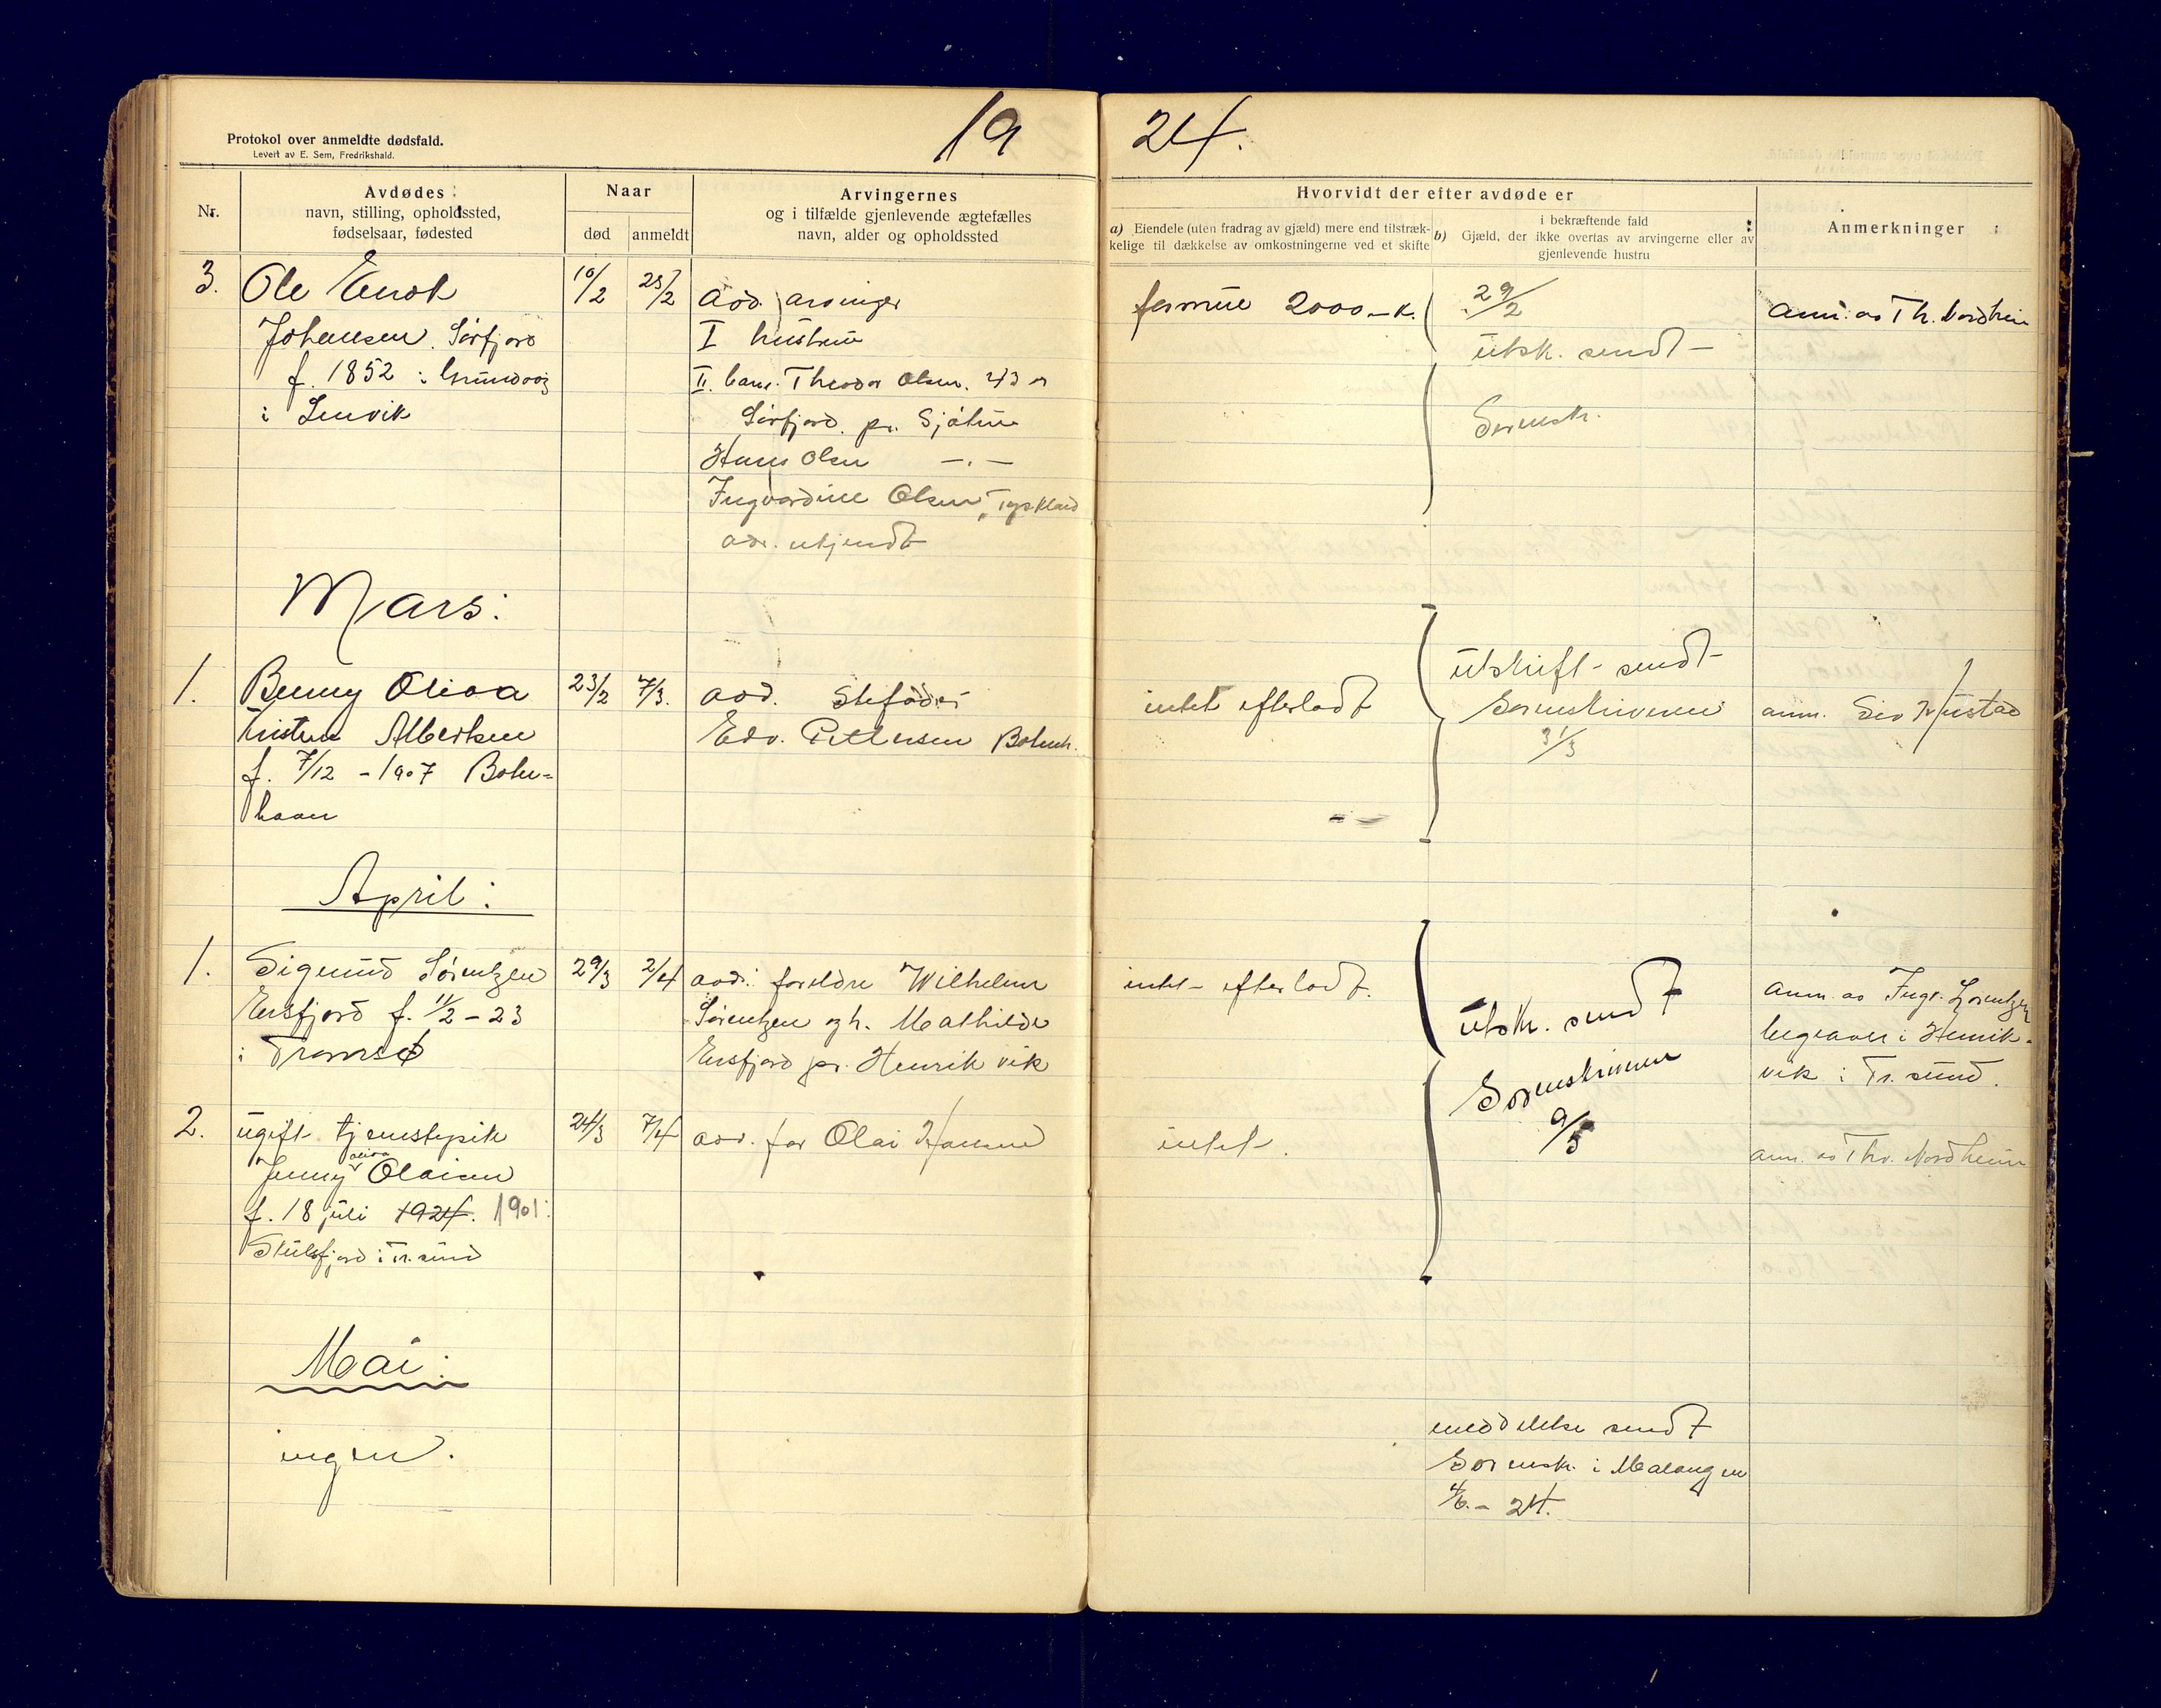 Protokol over anmeldte dødsfald.
Levert av E. Sem, Fredrikshald.
19
24.
Nr.
Avdødes
navn, stilling, opholdssted,
fødselsaar, fødested
Naar
død
anmeldt
Arvingernes
og i tilfælde gjenlevende ægtefælles
navn, alder og opholdssted
Hvorvidt der efter avdøde er
a) Eiendele (uten fradrag av gjæld) mere end tilstræk-
kelige til dækkelse av omkostningerne ved et skifte
i bekræftende fald
b) Gjæld, der ikke overtas av arvingerne eller av
gjenlevende hustru
Anmerkninger
3.
Ole Enok
Johansen. Sørfjord
f. 1852 i
i Lenvik
10/2
avd. arvinger
I hustrue
II. barn. Theodor Olsen. 43 år
Sørfjord. pr. Sjøtun
Hans Olsen -.-
Ingvardine Olsen, Tyskland
adr. ukjendt
formue 2000 - k.
29/2
utsk. sendt -
Sorenskr.
anm. av Th. Nordheim
Mars:
1.
Benny Oliva
Kristine Albertsen
f. 7/12 - 1907 Botn-
havn
23/2
7/3.
avd. stefader
Edv. Pettersen Botnh.
intet efterladt
utskrift - sendt -
Sorenskriveren
31/3
anm.
April:
1.
Sigmund Sørentzen
Ersfjord f. 11/2 - 23
i Tromsø
29/3
2/4
avd. foreldre Wilhelm
Sørentzen og h. Mathilde
Ersfjord pr. Henrikvik
intet - efterladt.
utskr. sendt
Sorenskriveren
9/5
anm. av Ingr. Lorentzen
begraves i Henrik-
vik i Tr.sund.
2.
ugift tjenestepike
Jenny oliva Olaisen
f. 18 juli 1924. 1901.
i Tr.sund
24/3
7/4
avd. far Olai Hansen
intet.
anm. av Thv. Nordheim
Mai:
ingen.
meddelelse sendt
Sorensk. i Malangen
4/6. - 24.